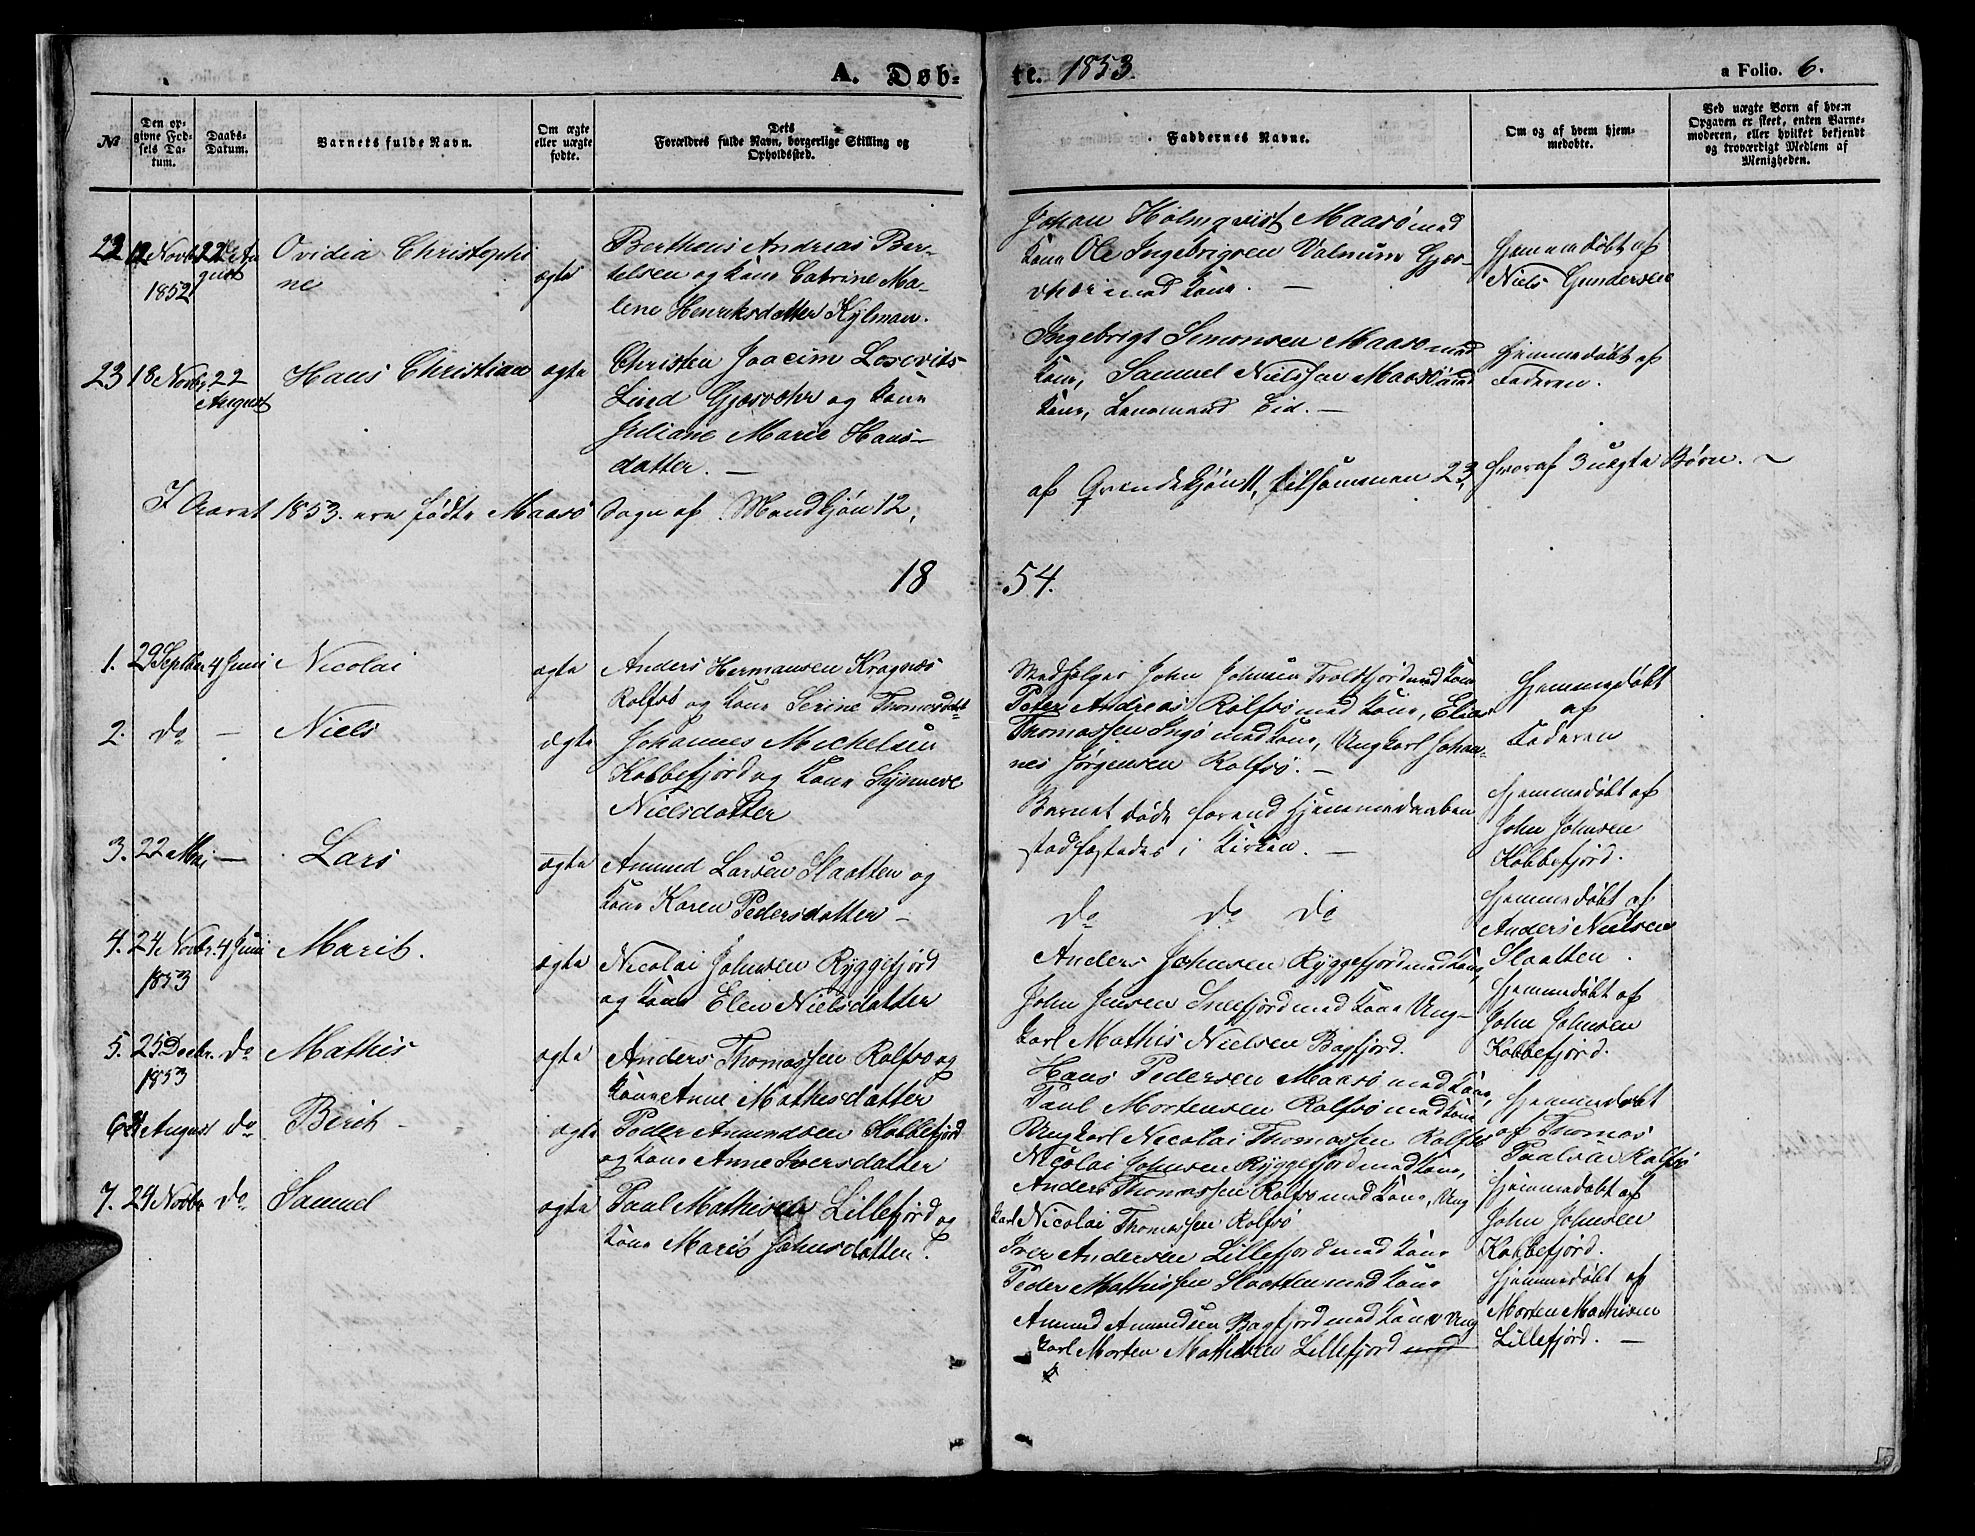 A. Døb-
te. 1853.
a Folio. 6.
№
Den op-
givne Fød-
sels Da-
tum.
Daabs-
Datum.
Barnets fulde Navn.
Om ægte
eller uægte
fødte.
Dets
Forældres fulde Navn, borgerlige Stilling og
Opholdssted.
Faddernes Navne.
Om og af hvem hjem-
medøbt.
Ved uægte Børn af hvem
Opgaven er skeet, enten Barne-
moderen, eller hvilket bekjendt
og troværdigt Medlem af
Menigheden.
22 12 Novbr 22de Au
1852 gust
Ovidia Christophi
ne
ægte
Bertheus Andreas Ber-
telsen og Kone Catrine Ma-
lene Henriksdatter Kylman.
Johan Holmqvist Maasø med
Kone Ole Ingebrigtsen Valnum Gjes-
vær med Kone. —
Hjemmedøbt af
Niels Gundersen
23 18 Novbr. 22
August
Hans Christian
ægte
Christen Joacim
Lind Gjesvær og Kone
Juliane Marie Hans-
datter. —
Ingebrigt Simonsen Maasø med
Kone, Samuel Nielssen Maasø med
Kone, Lensmand Eid. —
Hjemmedøbt af
Faderen.
I Aaret 1853 ere fødte Maasø Sogn af Mandkjøn 12,
af Qvindekjøn 11, tilsammen 23, hvoraf 3 uægte Børn. —
18 54.
1. 29 Septbr 4 Juni
Nicolai
ægte
Anders Hermansen Kragnæs
Rolfsø og Kone Serine Thomasdat-
Medhjelper John Johnsen Troldfjord med Kone
Peter Andreas Rolfsø med Kone, Elias
Thomassen Ingø med Kone, Ungkarl Johan-
nes Jørgensen Rolfsø. —
Hjemmedøbt
af
Faderen
2. do —
Niels
ægte
Johannes Michelsen
Kobbefjord og Kone Synneve
Nielsdatter
Barnet døde forend Hjemmedaaben
stadfæstedes i Kirken. —
Hjemmedøbt af
John Johnsen
Kobbefjord.
3. 22 Mai —
Lars
ægte
Amund Larsen Slaatten og
Kone Karen Pedersdatter —
do do do
Hjemmedøbt af
Anders Nielsen
Slaatten.
4. 24 Novbr. 4 Juni
1853
Marit.
ægte
Nicolai Johnsen Ryggefjord
og Kone Elen Nielsdatter
Anders Johnsen Ryggefjord med Kone,
John Jensen Snefjord med Kone Ung-
karl Mathis Nielsen Bagfjord.
Hjemmedøbt af
John Johnsen
Kobbefjord.
5. 25 Decbr. do
1853
Mathis
ægte
Anders Thomassen Rolfsø og
Kone Anne Mathisdatter
Hans Pedersen Maasø med Kone,
Paul Mortensen Rolfsø med Kone
Ungkarl Nicolai Thomassen Rolfsø
Hjemmedøbt
af Thomas
Paulsen Rolfsø
6 August do
Berit
ægte
Peder Amundsen Kobbefjord
og Kone Anne Iversdatter
Nicolai Johnsen Ryggefjord med Kone,
Anders Thomassen Rolfsø med Kone, Ung
karl Nicolai Thomassen Rolfsø
Hjemmedøbt af
John Johnsen
Kobbefjord.
7. 24 Novbr do
Samuel
ægte
Paul Mathisen Lillefjord og
Kone Marit Johnsdatter.
Iver Andersen Lillefjord med Kone
Peder Mathissen Slaatten med Kone
Amund Amundsen Bagfjord med Kone Ung
karl Morten Mathisen Lillefjord med
Hjemmedøbt af
Morten Mathisen
Lillefjord. —